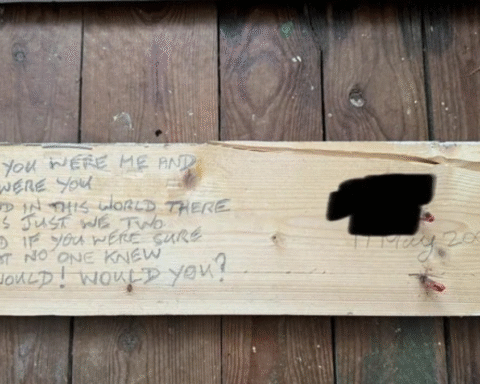 YOU WERE ME AND
WERE YOU
D IN THIS WORLD THERE
S JUST WE TWO
D IF YOU WERE SURE
T NO ONE KNEW
WOULD! WOULD YOU?
May 200